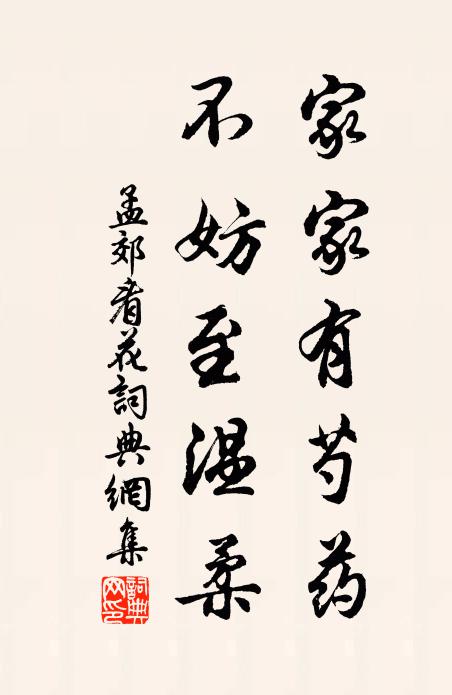 家家有芍药
不妨至温柔
孟郊看花詞典網集
詞典网印